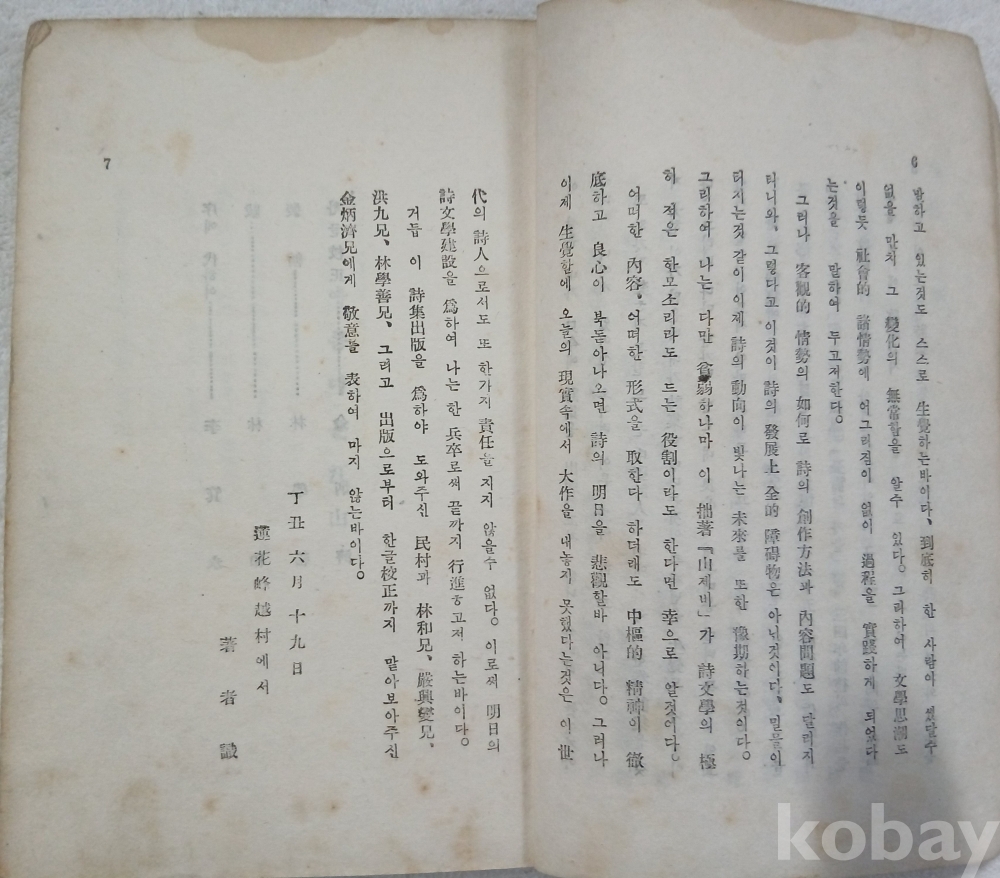 6
발하고 있는것도 스스로 生覺하는바이다、到底히 한 사람이 썼달수
없을 만치 그 變化의 無常함을 알수 있다。그리하여 文學思潮도
이렇듯 社會的 諸情勢에 어그러짐이 없이 過程을 實踐하게 되었다
는것을 말하여 두고저한다。
그러나 客觀的 情勢의 如何로 詩의 創作方法과 內容問題도 달리지
터니와、그렇다고 이것이 詩의 發展上 全的 障碍物은 아닌것이다、밀물이
터지는것 같이 이제 詩의 動向이 빛나는 未來를 또한 像期하는것이다。
그리하여 나는 다만 貧弱하나마 이 拙著『山제비』가 詩文學의 極
히 적은 한모소리라도 드는 役割이라도 한다면 幸으로 알것이다。
어떠한 內容、어떠한 形式을 取한다 하더래도 中樞的 精神이 徹
底하고 良心이 북돋아나오면 詩의 明日을 悲觀할바 아니다。그러나
이제 生覺할에 오늘의 現實속에서 大作을 내놓지 못했다는것은 이 世
7
代의 詩人으로서도 또 한가지 責任을 지지 않을수 없다。이로써 明日의
詩文學建設을 爲하여 나는 한 兵卒로써 끝까지 行進하고저 하는바이다。
거듭 이 詩集出版을 爲하야 도와주신 民村과 林和兄、嚴興燮兄、
洪九兄、林學善兄、그리고 出版으로부터 한글校正까지 맡아보아주신
金炳濟兄에게 敬意를 表하여 마지 않는바이다。
丁丑六月十九日
蓮花峰越村에서
著者識
kobay